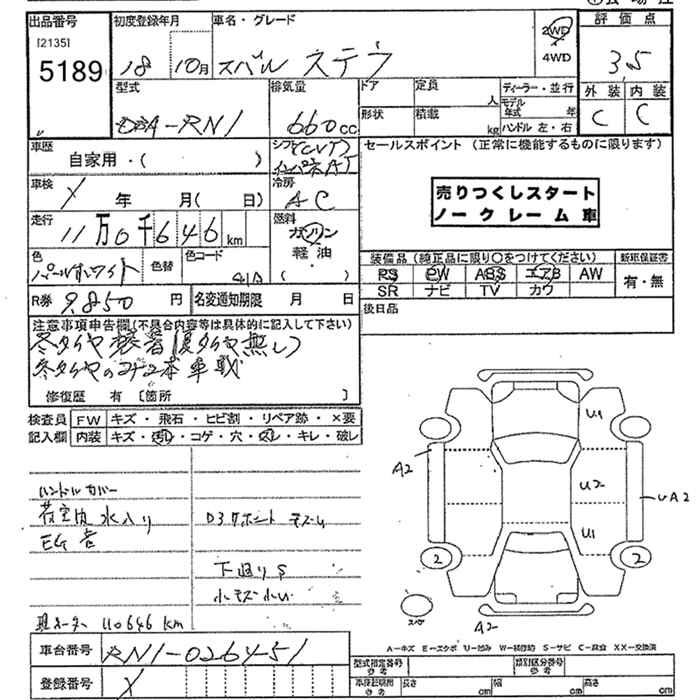 出品番号
[2135]
5189
初度登録年月
車名・グレード
評価点
18
10月
スバル ステラ
2WD
4WD
3.5
型式
DBA-RN1
排気量
660cc
ドア
定員
人
ディーラー・並行
外装
内装
形状
積載
kg
モデル年式
年
ハンドル 左・右
C
C
車歴
自家用・( )
シフト(CVT)
インパネAT
セールスポイント(正常に機能するものに限ります)
車検
X 年 月( 日)
冷房
AC
売りつくしスタート
ノークレーム車
走行
11万0千646km
燃料
ガソリン
軽油・
( )
色
パールホワイト
色替
色コード
41A
装備品(純正品に限り○をつけてください)
新車保証書
PS PW ABS エアB AW
SR ナビ TV カワ
有・無
R券
9,850円
名変通知期限 月 日
後日品
注意事項申告欄(不具合内容等は具体的に記入して下さい)
冬タイヤ装着(夏タイヤ無し)
修復歴 有 [箇所 ]
検査員
記入欄
FW
キズ・飛石・ヒビ割・リペア跡・×要
内装
キズ・汚れ・コゲ・穴・スレ・キレ・破レ
ハンドルカバー
荷室内水入り
EG音
下廻りS
小キズ小U
現メーター 110646km
U1
A2
U2
UA2
U1
2
2
スペア
A2
車台番号
RN1-026451
登録番号
X
A=キズ E=エクボ U=凹み W=補修跡 S=サビ C=腐食 XX=交換済
型式指定番号
参考
類別区分番号
参考
車庫証明用
参考
長さ cm
幅 cm
高さ cm